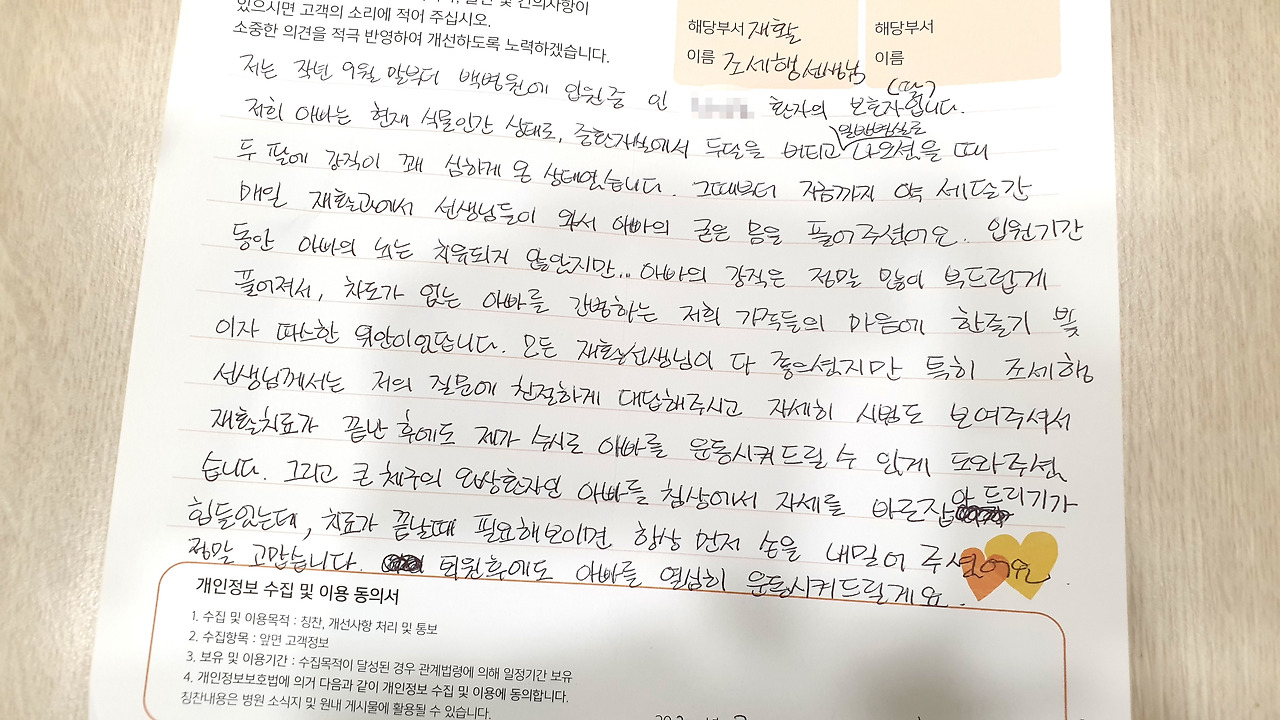 및 건의사항이
있으시면 고객의 소리에 적어 주십시오.
소중한 의견을 적극 반영하여 개선하도록 노력하겠습니다.
해당부서 재활
이름 조세행 선생님
해당부서
이름
저는 작년 9월 말부터 백병원에 입원중 인 환자의 보호자(딸)입니다.
저희 아빠는 현재 식물인간 상태로, 중환자실에서 두달을 버티고 일반병실로 나오셨을 때
두 팔에 강직이 꽤 심하게 온 상태였습니다. 그때부터 지금까지 약 세달간
매일 재활과에서 선생님들이 와서 아빠의 굳은 몸을 풀어주셨어요. 입원기간
동안 아빠의 뇌는 치유되지 않았지만.. 아빠의 강직은 정말 많이 부드럽게
풀어져서, 차도가 없는 아빠를 간병하는 저희 가족들의 마음에 한줄기 빛
이자 따스한 위안이었습니다. 모든 재활선생님이 다 좋으셨지만 특히 조세행
선생님께서는 저의 질문에 친절하게 대답해주시고 자세히 시범도 보여주셔서
재활치료가 끝난 후에도 제가 수시로 아빠를 운동시켜드릴 수 있게 도와주셨
습니다. 그리고 큰 체구의 와상환자인 아빠를 침상에서 자세를 바로잡아 드리기가
힘들었는데, 치료가 끝날때 필요해보이면 항상 먼저 손을 내밀어 주셨어요.
정말 고맙습니다. 퇴원후에도 아빠를 열심히 운동시켜드릴게요.
개인정보 수집 및 이용 동의서
1. 수집 및 이용목적 : 칭찬, 개선사항 처리 및 통보
2. 수집항목 : 앞면 고객정보
3. 보유 및 이용기간 : 수집목적이 달성된 경우 관계법령에 의해 일정기간 보유
4. 개인정보보호법에 의거 다음과 같이 개인정보 수집 및 이용에 동의합니다.
칭찬내용은 병원 소식지 및 원내 게시물에 활용될 수 있습니다.